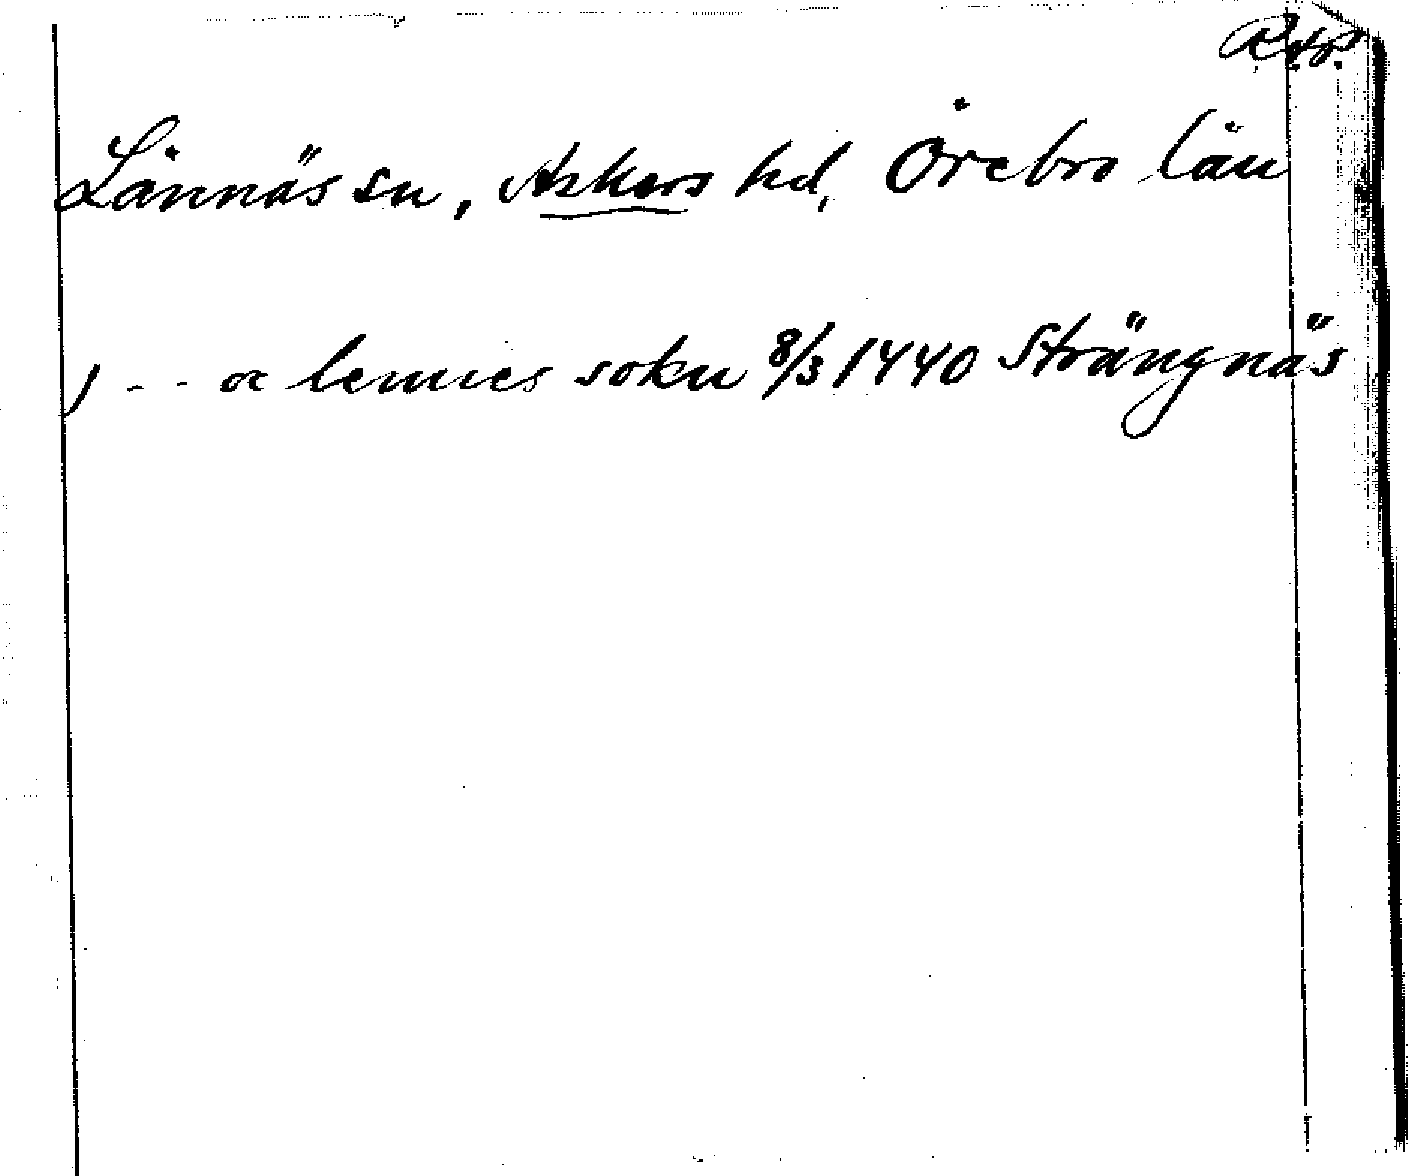 RAP.
Lännäs sn, Askers hd, Örebro län
) - - oc lennes sokn 8/3 1440 Strängnäs